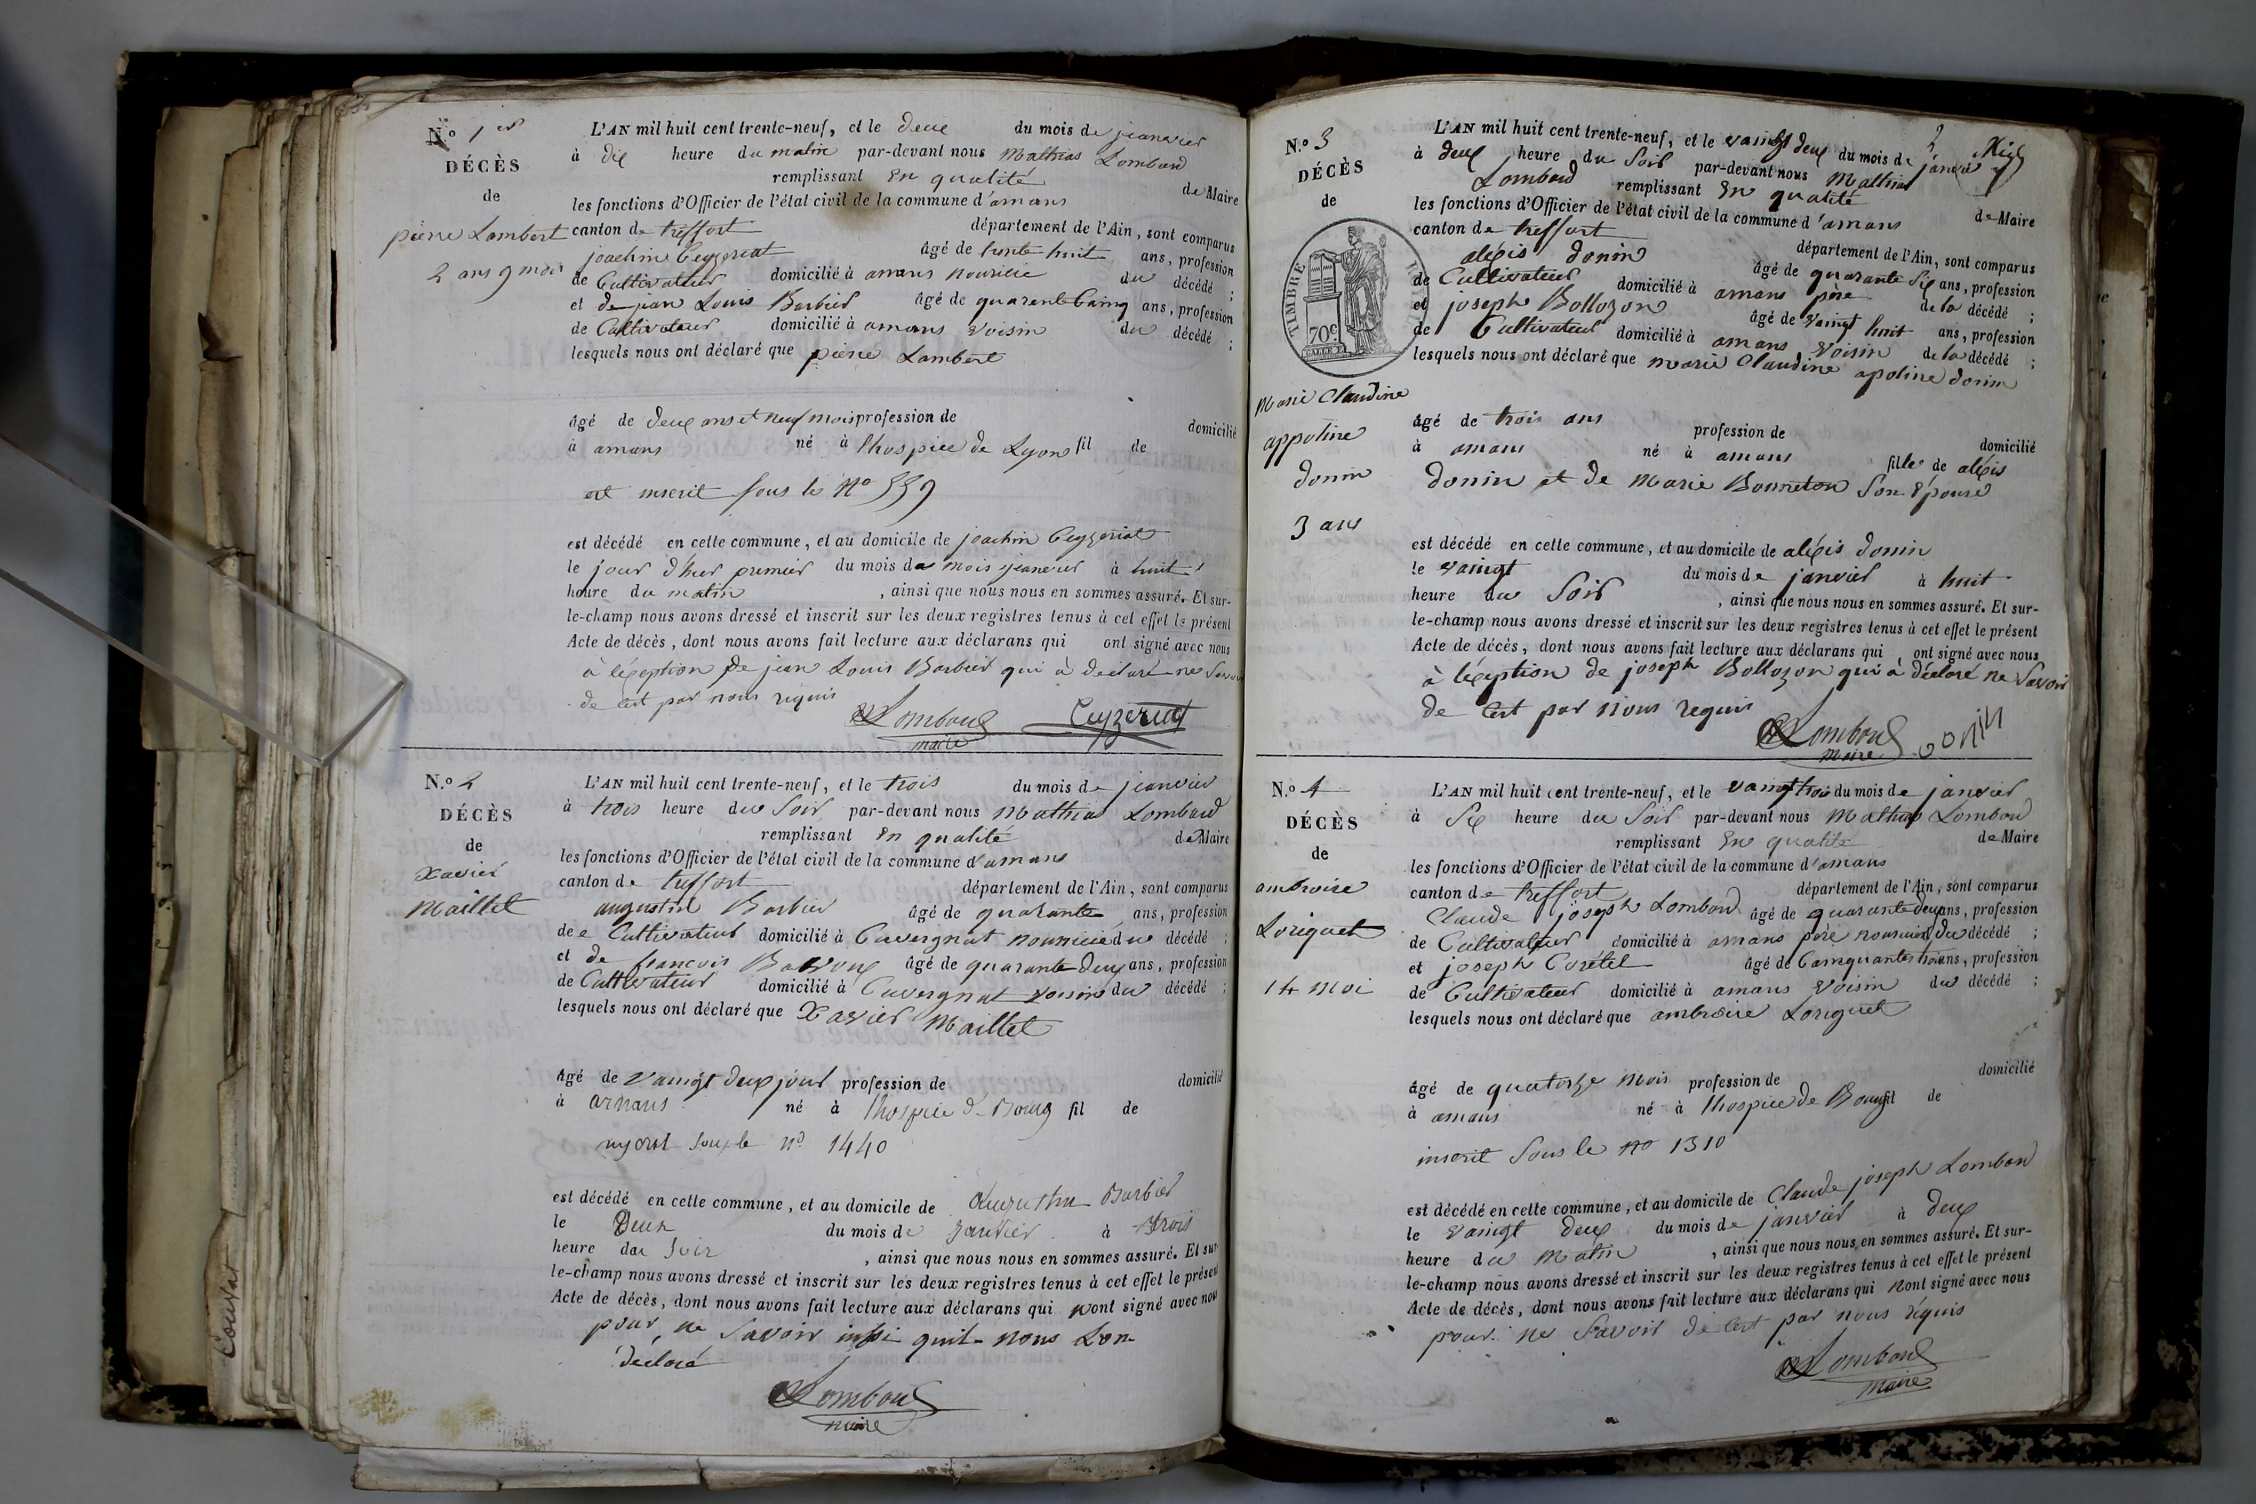 N.o 1er
DÉCÈS
de
pierre Lambert
2 ans 9 mois
L'AN mil huit cent trente-neuf, et le deux du mois de jeanvier
à dix heure du matin par-devant nous Mathias Lombard
remplissant en qualité de Maire
les fonctions d'Officier de l'état civil de la commune d'arnans
canton de treffort département de l'Ain, sont comparus
joachin Ceyzeriat âgé de trente huit ans, profession
de Cultivateur domicilié à arnans nourricié du décédé ;
et de jean Louis Barbier âgé de quarente Cainq ans, profession
de Cultivateur domicilié à arnans voisin du décédé ;
lesquels nous ont déclaré que pierre Lambert
âgé de deux ans et neuf mois profession de domicilié
à arnans né à lhospice de Lyon fil de
et inscrit sous le No 559
est décédé en cette commune, et au domicile de joachin Ceyzeriat
le jour d'hier premier du mois de mois jeanvier à huit
heure du matin , ainsi que nous nous en sommes assuré. Et sur-
le-champ nous avons dressé et inscrit sur les deux registres tenus à cet effet le présent
Acte de décès, dont nous avons fait lecture aux déclarans qui ont signé avec nous
à léxeption de jean Louis Barbier qui à declaré ne Savoir
de cest par nous requis
Lombard Ceyzeriat
maire
N.o 2
DÉCÈS
de
Xavier
Maillet
L'AN mil huit cent trente-neuf, et le trois du mois de jeanvier
à trois heure du Soir par-devant nous Mathias Lombard
remplissant en qualité de Maire
les fonctions d'Officier de l'état civil de la commune d'arnans
canton de treffort département de l'Ain, sont comparus
augustin Barbier âgé de quarante ans, profession
de Cultivateur domicilié à Cuvergnat nourricié du décédé ;
et de francois âgé de quarante deux ans, profession
de Cultivateur domicilié à Cuvergnat voisin du décédé ;
lesquels nous ont déclaré que Xavier Maillet
âgé de vaingt deux jour profession de domicilié
à arnans né à lhospice d Bourg fil de
sous le no 1440
est décédé en cette commune, et au domicile de Augustin Barbier
le Deux du mois de janvier à trois
heure du Soir , ainsi que nous nous en sommes assuré. Et sur-
le-champ nous avons dressé et inscrit sur les deux registres tenus à cet effet le présent
Acte de décès, dont nous avons fait lecture aux déclarans qui nont signé avec nous
pour ne Savoir insi quil nous Lon
déclaré
Lombard
maire
Couvat
2
N.o 3
DÉCÈS
de
TIMBRE ROYAL
70c
Marie Claudine
appoline
donin
3 ans
L'AN mil huit cent trente-neuf, et le vaingt deux du mois de janvier
à deux heure du Soir par-devant nous Mathias
Lombard remplissant en qualité de Maire
les fonctions d'Officier de l'état civil de la commune d'arnans
canton de treffort département de l'Ain, sont comparus
aléxis donin âgé de quarante Six ans, profession
de Cultivateur domicilié à arnans père de la décédé ;
et joseph Bollozon âgé de vaingt huit ans, profession
de Cultivateur domicilié à arnans voisin de la décédé ;
lesquels nous ont déclaré que marie Claudine apoline donin
âgé de trois ans profession de domicilié
à arnans né à arnans fille de aléxis
donin et de Marie Bonneton Son épouse
est décédé en cette commune, et au domicile de aléxis donin
le vaingt du mois de janvier à huit
heure du Soir , ainsi que nous nous en sommes assuré. Et sur-
le-champ nous avons dressé et inscrit sur les deux registres tenus à cet effet le présent
Acte de décès, dont nous avons fait lecture aux déclarans qui ont signé avec nous
à léxeption de joseph Bollozon qui à déclaré ne Savoir
de Cest par nous requis
Lombard donin
maire
N.o 4
DÉCÈS
de
ambroise
Loriguet
14 moi
L'AN mil huit cent trente-neuf, et le vaingt trois du mois de janvier
à Six heure du Soir par-devant nous Mathias Lombard
remplissant en qualité de Maire
les fonctions d'Officier de l'état civil de la commune d'arnans
canton de treffort département de l'Ain, sont comparus
Claude joseph Lombard âgé de quarante deux ans, profession
de Cultivateur domicilié à arnans père nourricié du décédé ;
et joseph Corétel âgé de Cainquante trois ans, profession
de Cultivateur domicilié à arnans voisin du décédé ;
lesquels nous ont déclaré que ambroise Loriguet
âgé de quatorze mois profession de domicilié
à arnans né à lhospice de Bourg fil de
inscrit Sous le No 1310
est décédé en cette commune, et au domicile de Claude joseph Lombard
le vaingt deux du mois de janvier à deux
heure du matin , ainsi que nous nous en sommes assuré. Et sur-
le-champ nous avons dressé et inscrit sur les deux registres tenus à cet effet le présent
Acte de décès, dont nous avons fait lecture aux déclarans qui nont signé avec nous
pour ne Savoir de cest par nous réquis
Lombard
maire